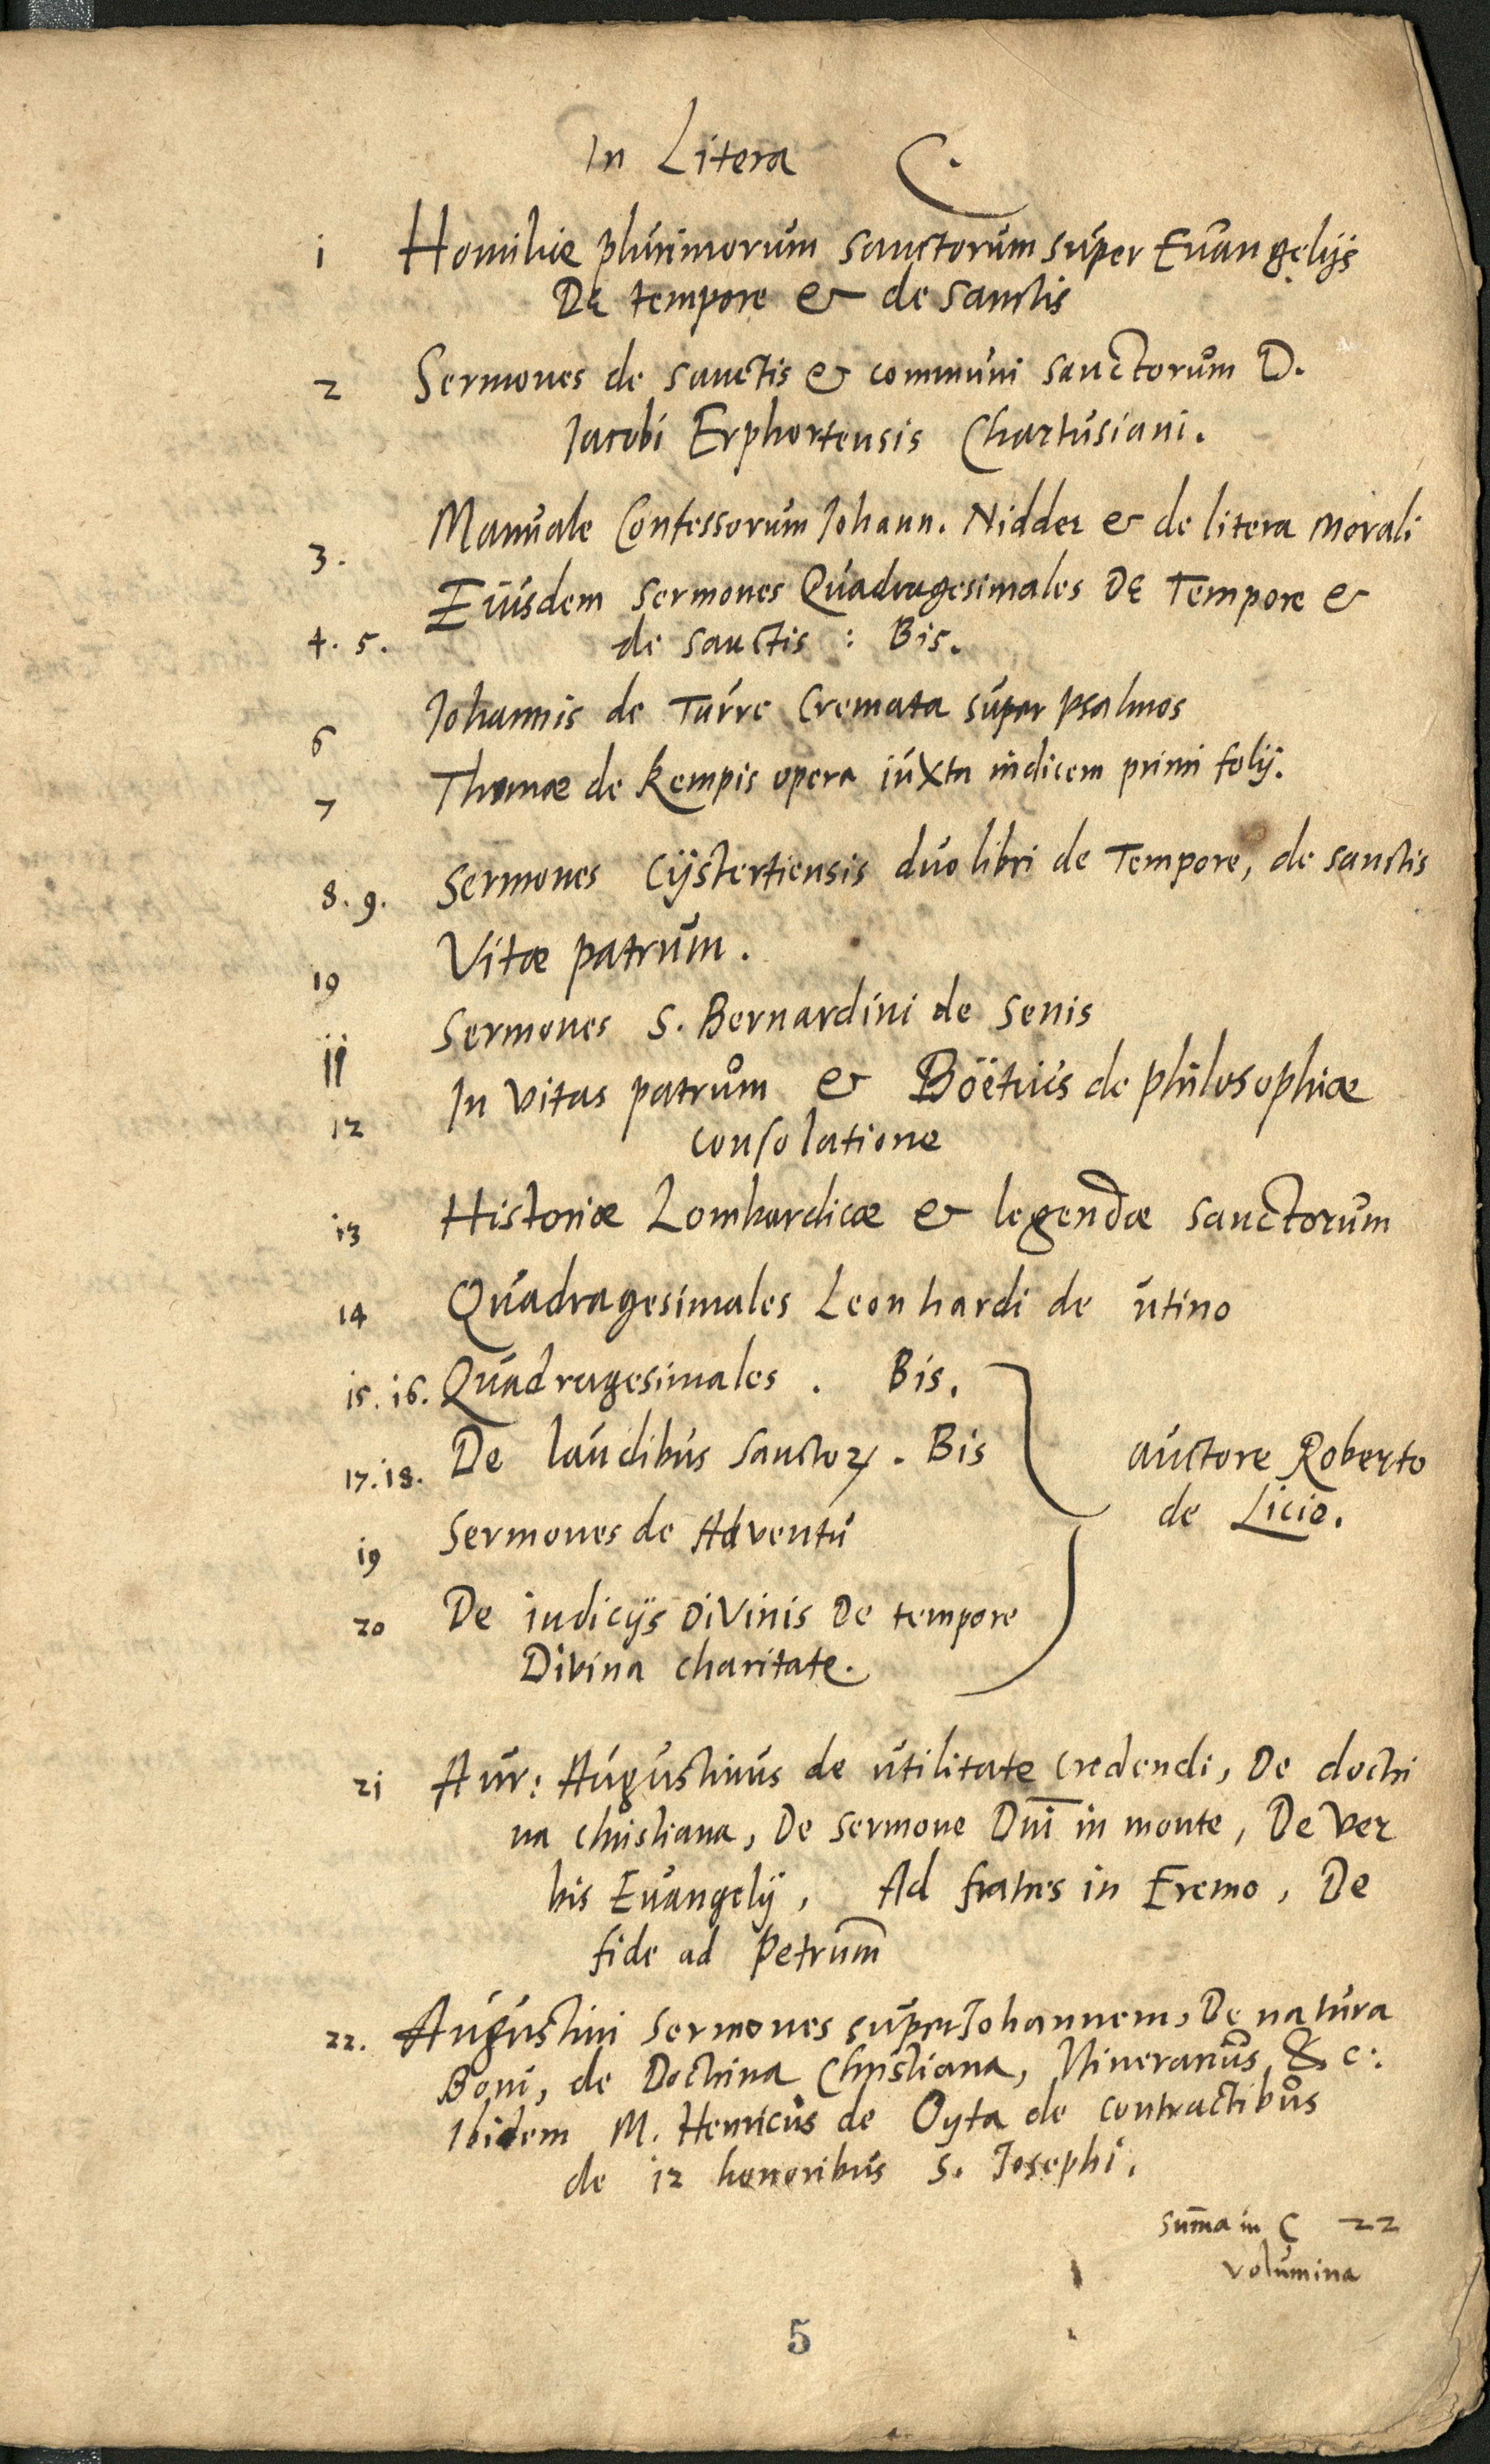 In Litera C.
1 Homiliæ plurimorum sanctorum super Euangelijs
De tempore & de sanctis
2 Sermones de sanctis & communi sanctorum D.
Jacobi Erphortensis Chartusiani.
3. Manuale Confessorum Johann. Nidder & de litera morali
Eiusdem sermones Quadragesimales De Tempore &
4. 5. de sanctis : Bis.
6 Johannis de Turre Cremata super psalmos
7 Thomæ de Kempis opera iuxta indicem primi folij.
8. 9. Sermones Cijstertiensis duo libri de Tempore, de sanctis
10 Vitæ patrum.
11 Sermones S. Bernardini de Senis
12 In vitas patrum & Boëtius de philosophiæ
consolatione
13 Historiæ Lombardicæ & legendæ sanctorum
14 Quadragesimales Leonhardi de utino
15. 16. Quadragesimales . Bis.
17. 18. De laudibus sanctoꝝ . Bis auctore Roberto
de Licio.
19 Sermones de Adventu
20 De iudicijs Divinis De tempore
Divina charitate.
21 Aur: Augustinus de utilitate credendi, De doctri
na christiana, De sermone Dn̄i in monte, De ver
bis Euangelij, Ad fratres in Eremo, De
fide ad Petrum
22. Augustini Sermones super Johannem, De natura
Boni, de Doctrina Christiana, Itinerarius, & c:
Ibidem M. Henricus de Oyta de contractibus
de 12 honoribus S. Josephi.
Sum̄a in C 22
volumina
5